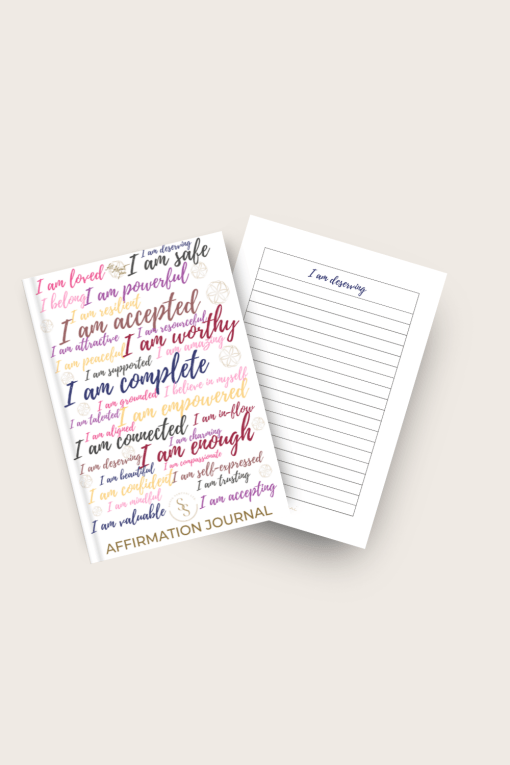 I am deserving
I am loved
I am safe
I belong
I am powerful
I am resilient
I am accepted
I am attractive
I am resourceful
I am worthy
I am peaceful
I am amazing
I am supported
I am complete
I am grounded
I believe in myself
I am talented
I am empowered
I am aligned
I am in-flow
I am connected
I am charming
I am enough
I am deserving
I am compassionate
I am beautiful
I am self-expressed
I am confident
I am trusting
I am mindful
I am accepting
I am valuable
AFFIRMATION JOURNAL
I am deserving